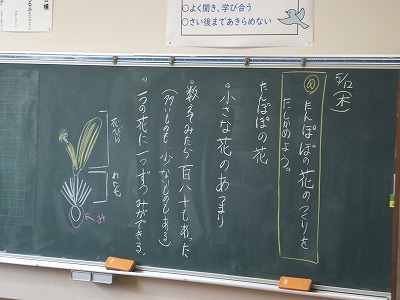 ○よく聞き、学び合う
○さい後まであきらめない
5/12(木)
め たんぽぽの花のつくりを
たしかめよう。
たんぽぽの花
・小さな花のあつまり
・数えてみたら百八十もあった
(多いものも少ないものもある)
・一つの花に一つずつみができる。
花びら
わた毛
み